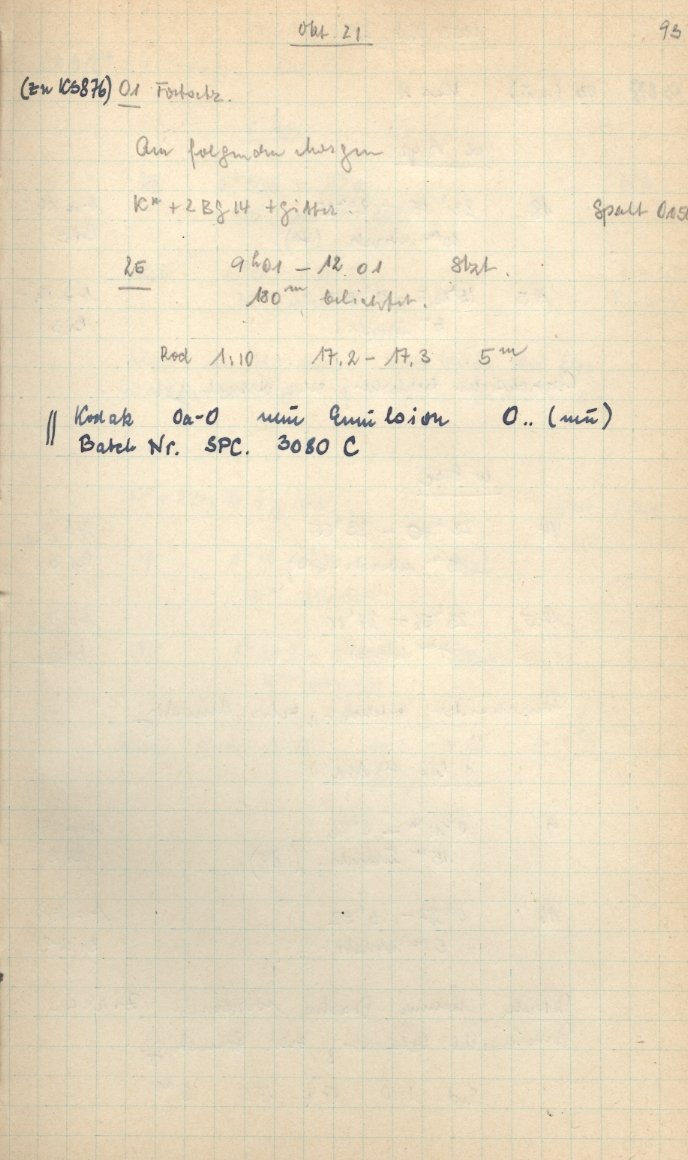 Okt. 21 93
(zu KS876) 01 Fortsetz.
Am folgenden Morgen
K* + 2 Bg 14 + Gitter. Spalt 0.050
26 9h01 – 12 01 Stzt.
180m belichtet.
Rod 1:10 17.2 – 17.3 5m
Kodak 0a-0 neue Emulsion 0.. (neu)
Batch Nr. SPC. 3080 C